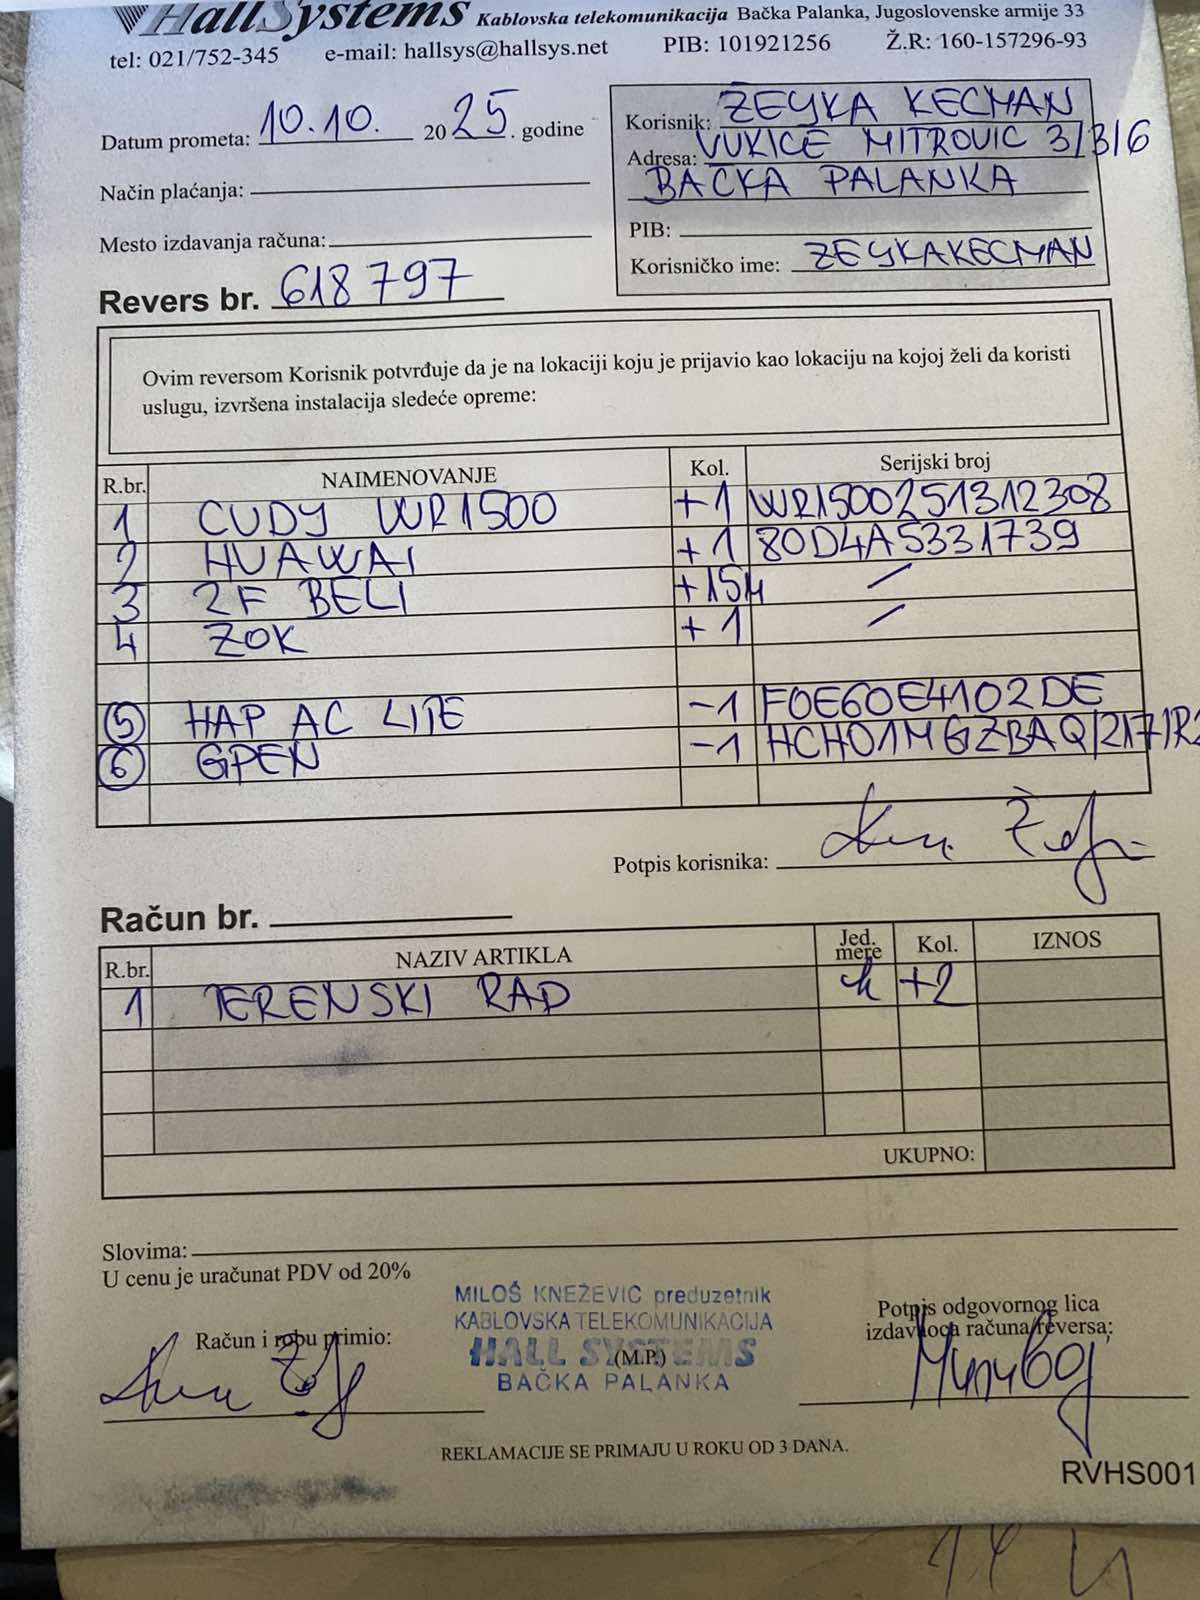 HallSystems Kablovska telekomunikacija Bačka Palanka, Jugoslovenske armije 33
tel: 021/752-345 e-mail: hallsys@hallsys.net PIB: 101921256 Ž.R: 160-157296-93
Datum prometa: 10.10. 2025. godine
Način plaćanja:
Mesto izdavanja računa:
Revers br. 618797
Korisnik: ZEYKA KECMAN
Adresa: VUKICE MITROVIC 3/3/6
BAČKA PALANKA
PIB:
Korisničko ime: ZEYKAKECMAN
Ovim reversom Korisnik potvrđuje da je na lokaciji koju je prijavio kao lokaciju na kojoj želi da koristi
uslugu, izvršena instalacija sledeće opreme:
R.br. NAIMENOVANJE Kol. Serijski broj
1 CUDY WR1500 +1 WR1500251312308
2 HUAWAI +1 80D4A5331739
3 2F BELI +15M /
4 ZOK +1 /
5 HAP AC LITE -1 F0E60E4102DE
6 GPEN -1 HCH01MGZBAQ/2171R2
Potpis korisnika:
Račun br.
R.br. NAZIV ARTIKLA Jed. mere Kol. IZNOS
1 TERENSKI RAD h +2
UKUPNO:
Slovima:
U cenu je uračunat PDV od 20%
Račun i robu primio:
MILOŠ KNEŽEVIĆ preduzetnik
KABLOVSKA TELEKOMUNIKACIJA
HALL SYSTEMS
(M.P.)
BAČKA PALANKA
Potpis odgovornog lica
izdavaoca računa/reversa:
REKLAMACIJE SE PRIMAJU U ROKU OD 3 DANA.
RVHS001